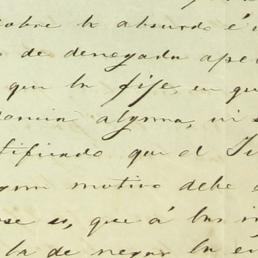 sobre lo absurdo é i
o de denegada ape
que la fije, en qu
ancia alguna, ni s
tificado que el Ju
gun motivo debe
se es, que á las in
la de negar la en